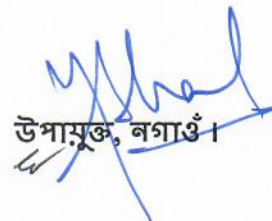 উপায়ুক্ত, নগাওঁ।